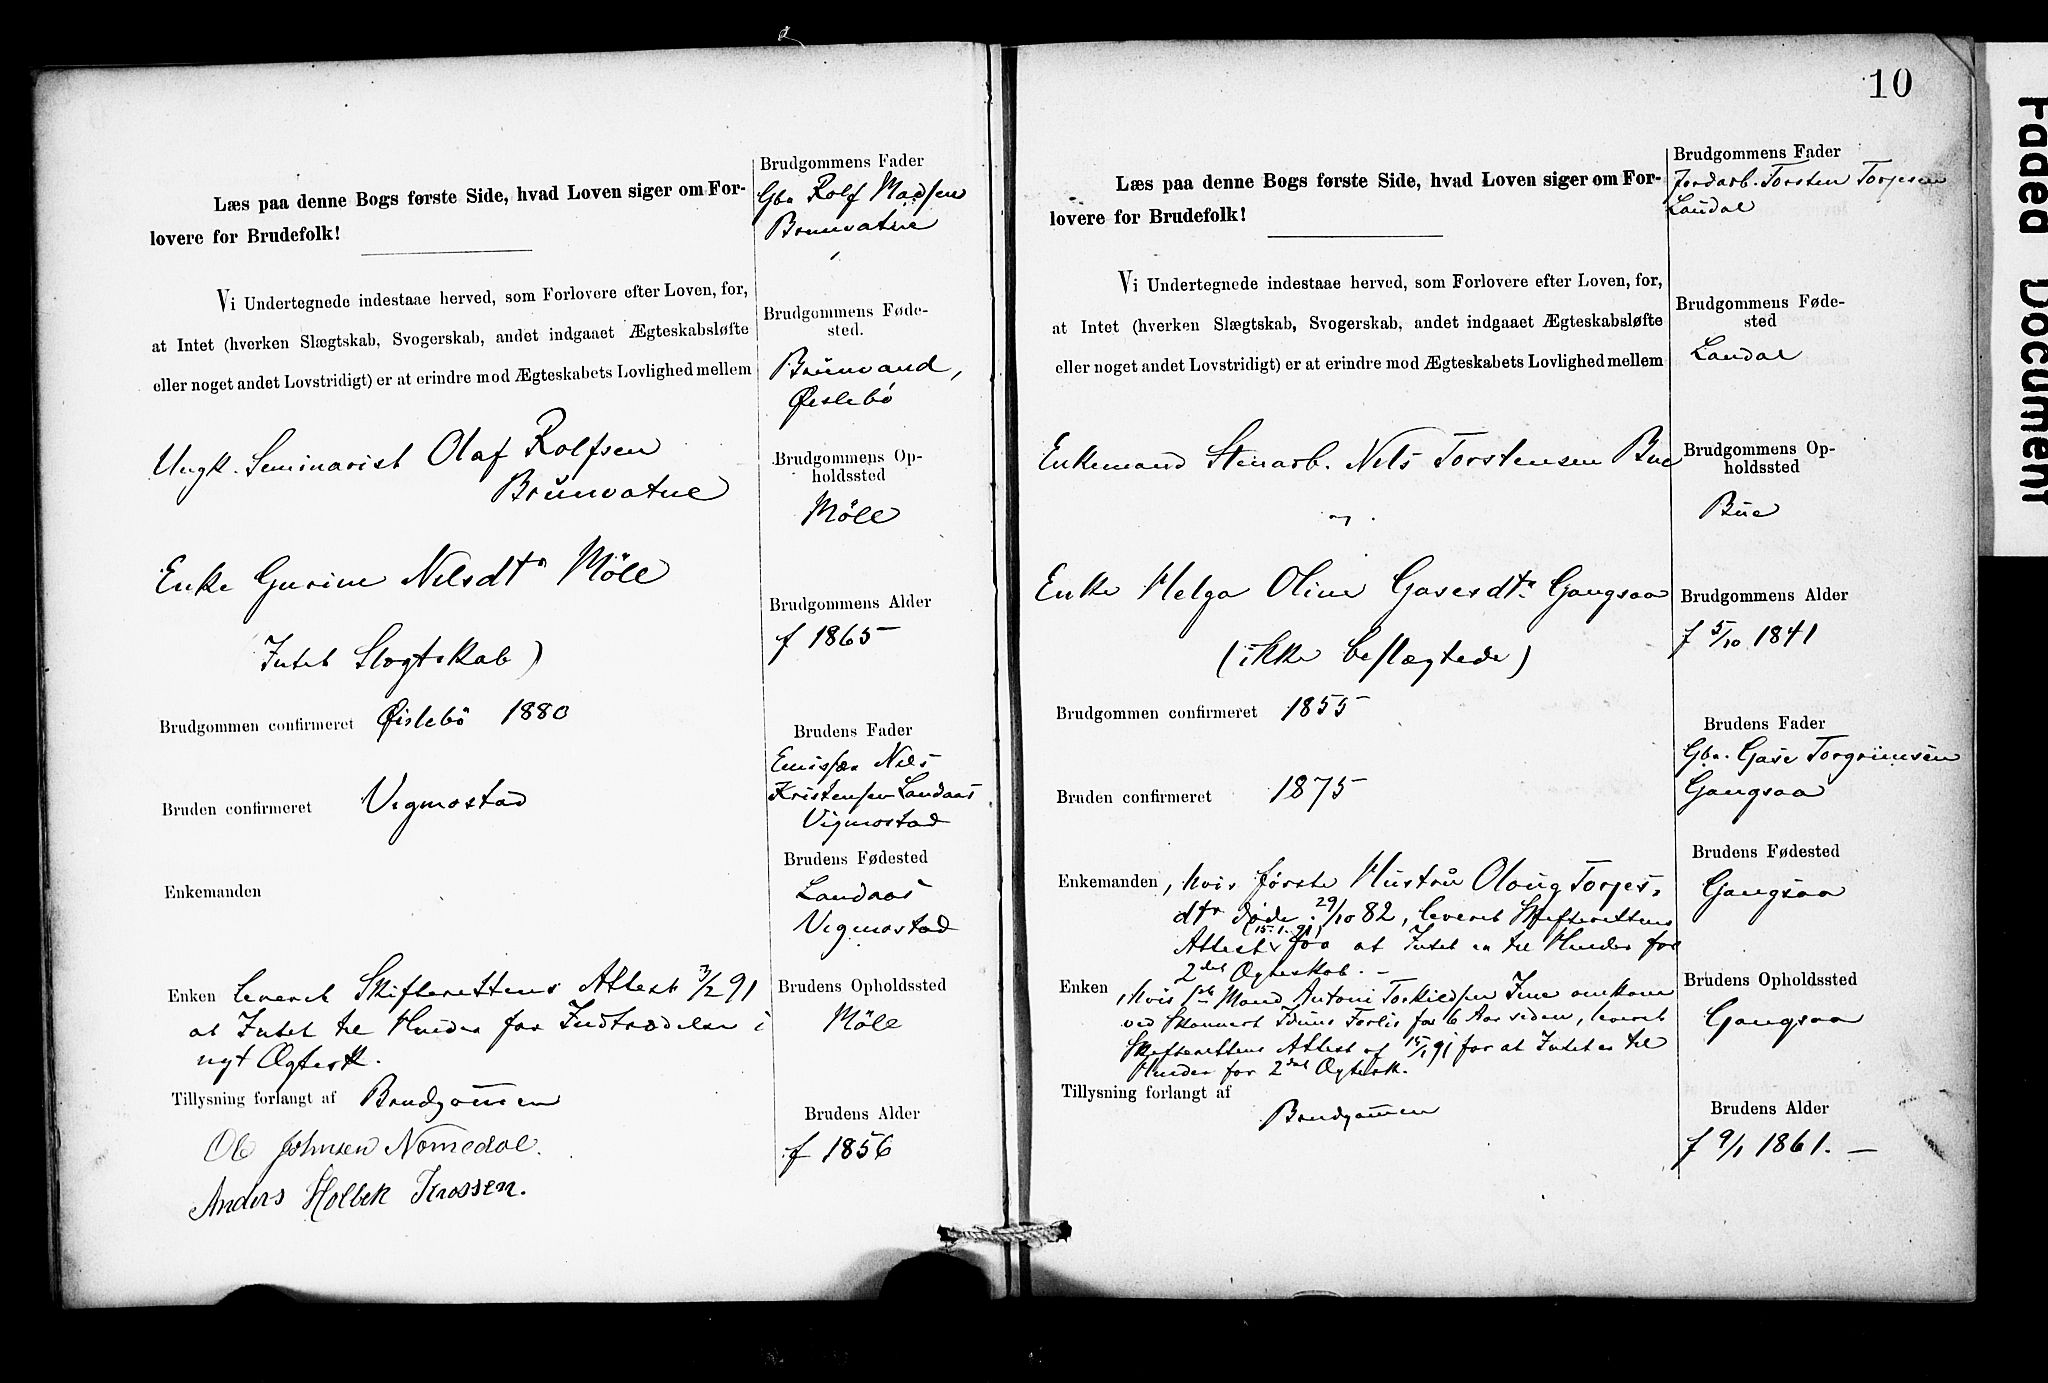 Læs paa denne Bogs første Side, hvad Loven siger om For-
lovere for Brudefolk!
Vi Undertegnede indestaae herved, som Forlovere efter Loven, for,
at Intet (hverken Slægtskab, Svogerskab, andet indgaaet Ægteskabsløfte
eller noget andet Lovstridigt) er at erindre mod Ægteskabets Lovlighed mellem
Ungk. Seminarist Olaf Rolfsen
Brunvatne
Enke Gurine Nilsdtr Möll
Intet Slægtskab)
Brudgommen confirmeret Øislebö 1880
Bruden confirmeret Vigmostad
Enkemanden
Enken leveret Skifterettens Attest 3/2 91
at Intet til Hinder for Indtrædelse i
nyt Ægtesk.
Tillysning forlangt af Brudgommen
Ole Johnsen Nomedal.
Anders Holbek Krossen.
Brudgommens Fader
Gbr Rolf Madsen
Brunvatne
Brudgommens Føde-
sted.
Brunvand,
Øislebö
Brudgommens Op-
holdssted
Möll
Brudgommens Alder
f 1865
Brudens Fader
Emissær Nils
Kristensen Landaas
Vigmostad
Brudens Fødested
Landaas
Vigmostad
Brudens Opholdssted
Möll
Brudens Alder
f 1856
10
Læs paa denne Bogs første Side, hvad Loven siger om For-
lovere for Brudefolk!
Vi Undertegnede indestaae herved, som Forlovere efter Loven, for,
at Intet (hverken Slægtskab, Svogerskab, andet indgaaet Ægteskabsløfte
eller noget andet Lovstridigt) er at erindre mod Ægteskabets Lovlighed mellem
Enkemand Stenarb. Nils Torstensen Bue
Enke Helga Oline Gasesdtr. Gangsaa
(ikke beslægtede)
Brudgommen confirmeret 1855
Bruden confirmeret 1875
Enkemanden, hvis første Hustru Olaug Torjes-
dtr døde 29/10 82, leveret Skifterettens
(15.1.91)
Attest for at Intet er til Hinder for
2det Ægteskab. -
Enken, hvis Mand Antoni Torkildsen Ime omkom
ved Skonnert Iduns Forlis for 6 Aar siden, leveret
Skifterettens Attest af 15/1 91 for at Intet er til
Hinder for 2det Ægtesk.
Tillysning forlangt af
Brudgommen
Brudgommens Fader
Jordarb. Torsten Torjesen
Laudal
Brudgommens Føde-
sted
Laudal
Brudgommens Op-
holdssted
Bue
Brudgommens Alder
f 5/10 1841
Brudens Fader
Gbr. Gase Torgrimsen
Gangsaa
Brudens Fødested
Gangsaa
Brudens Opholdssted
Gangsaa
Brudens Alder
f 9/1 1861. -
Faded Document